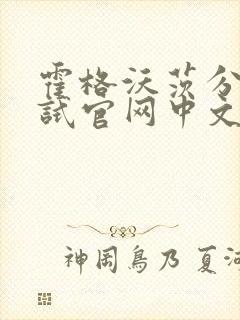 霍格沃茨分
试官网中文
神岡鳥乃 夏河